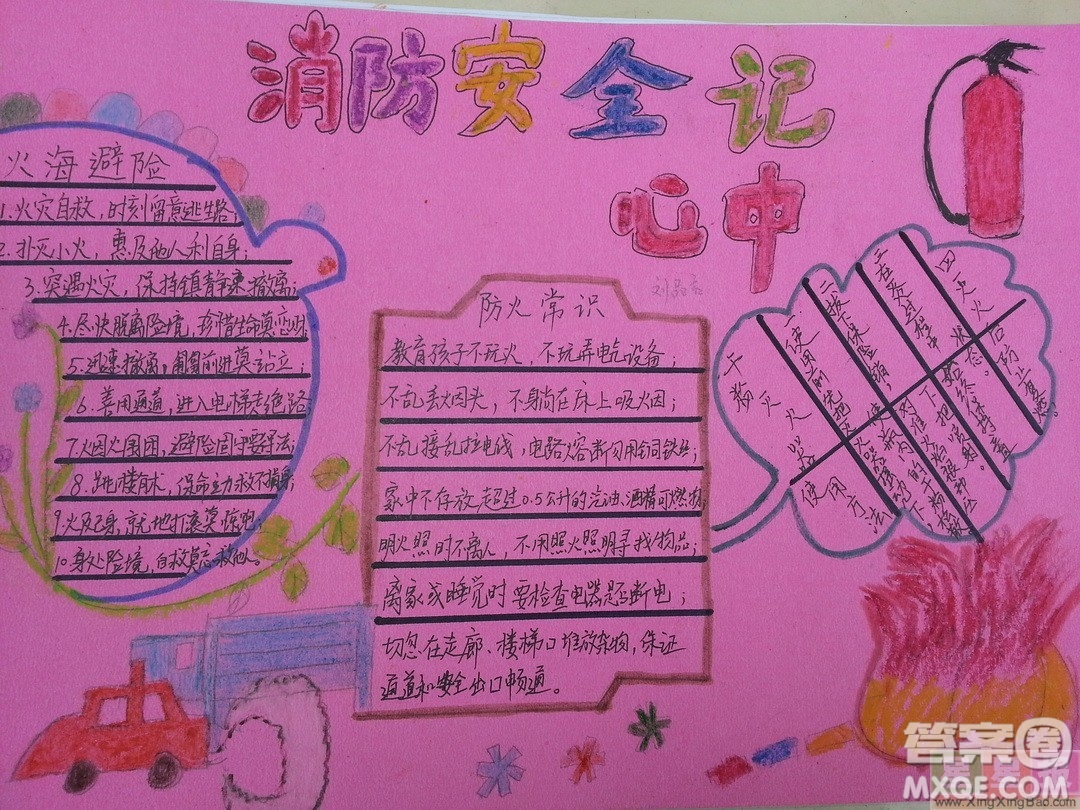 消防安全记
心中
火海避险
1.火灾自救,时刻留意逃生路;
2.扑灭小火,惠及他人利自身;
3.突遇火灾,保持镇静速撤离;
4.尽快脱离险境,珍惜生命莫恋财
5.迅速撤离,匍匐前进莫站立;
6.善用通道,进入电梯走绝路;
7.烟火围困,避险固守要得法;
8.跳楼有术,保命力求不损身;
9.火及己身,就地打滚莫惊跑;
10.身处险境,自救莫忘救他人。
防火常识
教育孩子不玩火,不玩弄电气设备;
不乱丢烟头,不躺在床上吸烟;
不乱接乱拉电线,电路熔断勿用铜铁丝;
家中不存放超过0.5公升的汽油、酒精可燃物;
明火照时不离人,不用照火照明寻找物品;
离家或睡觉时要检查电器是否断电;
切忽在走廊、楼梯口堆放杂物,保证
通道和安全出口畅通。
干粉灭火器
使用方法
使用前先把
二、拔下保险销;
状态。
四灭火后防止复燃。
答案圈
MXQE.COM
www.XingXingBao.com